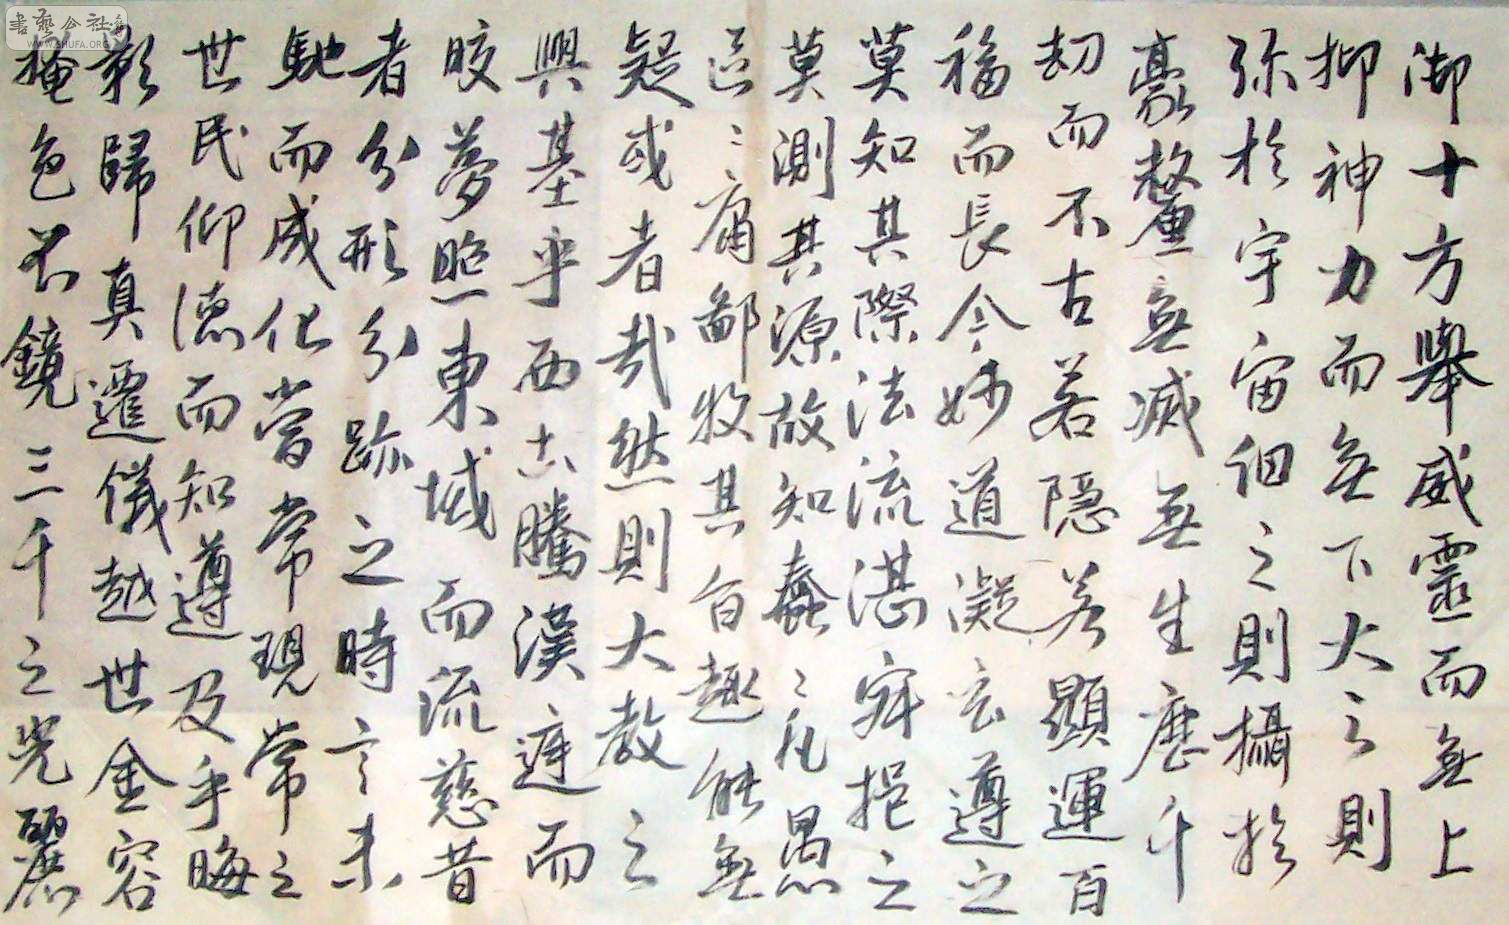 御十方舉威靈而無上
抑神力而無下大之則
弥於宇宙細之則攝於
豪釐無滅無生歷千
劫而不古若隱若顯運百
福而長今妙道凝玄遵之
莫知其際法流湛寂挹之
莫測其源故知蠢〻凡愚
區〻庸鄙投其旨趣能無
疑或者哉然則大教之
興基乎西土騰漢庭而
皎夢照東域而流慈昔
者分形分跡之時言未
馳而成化當常現常之
世民仰德而知遵及乎晦
影歸真遷儀越世金容
掩色不鏡三千之光麗
書藝公社
WWW.SHUFA.ORG